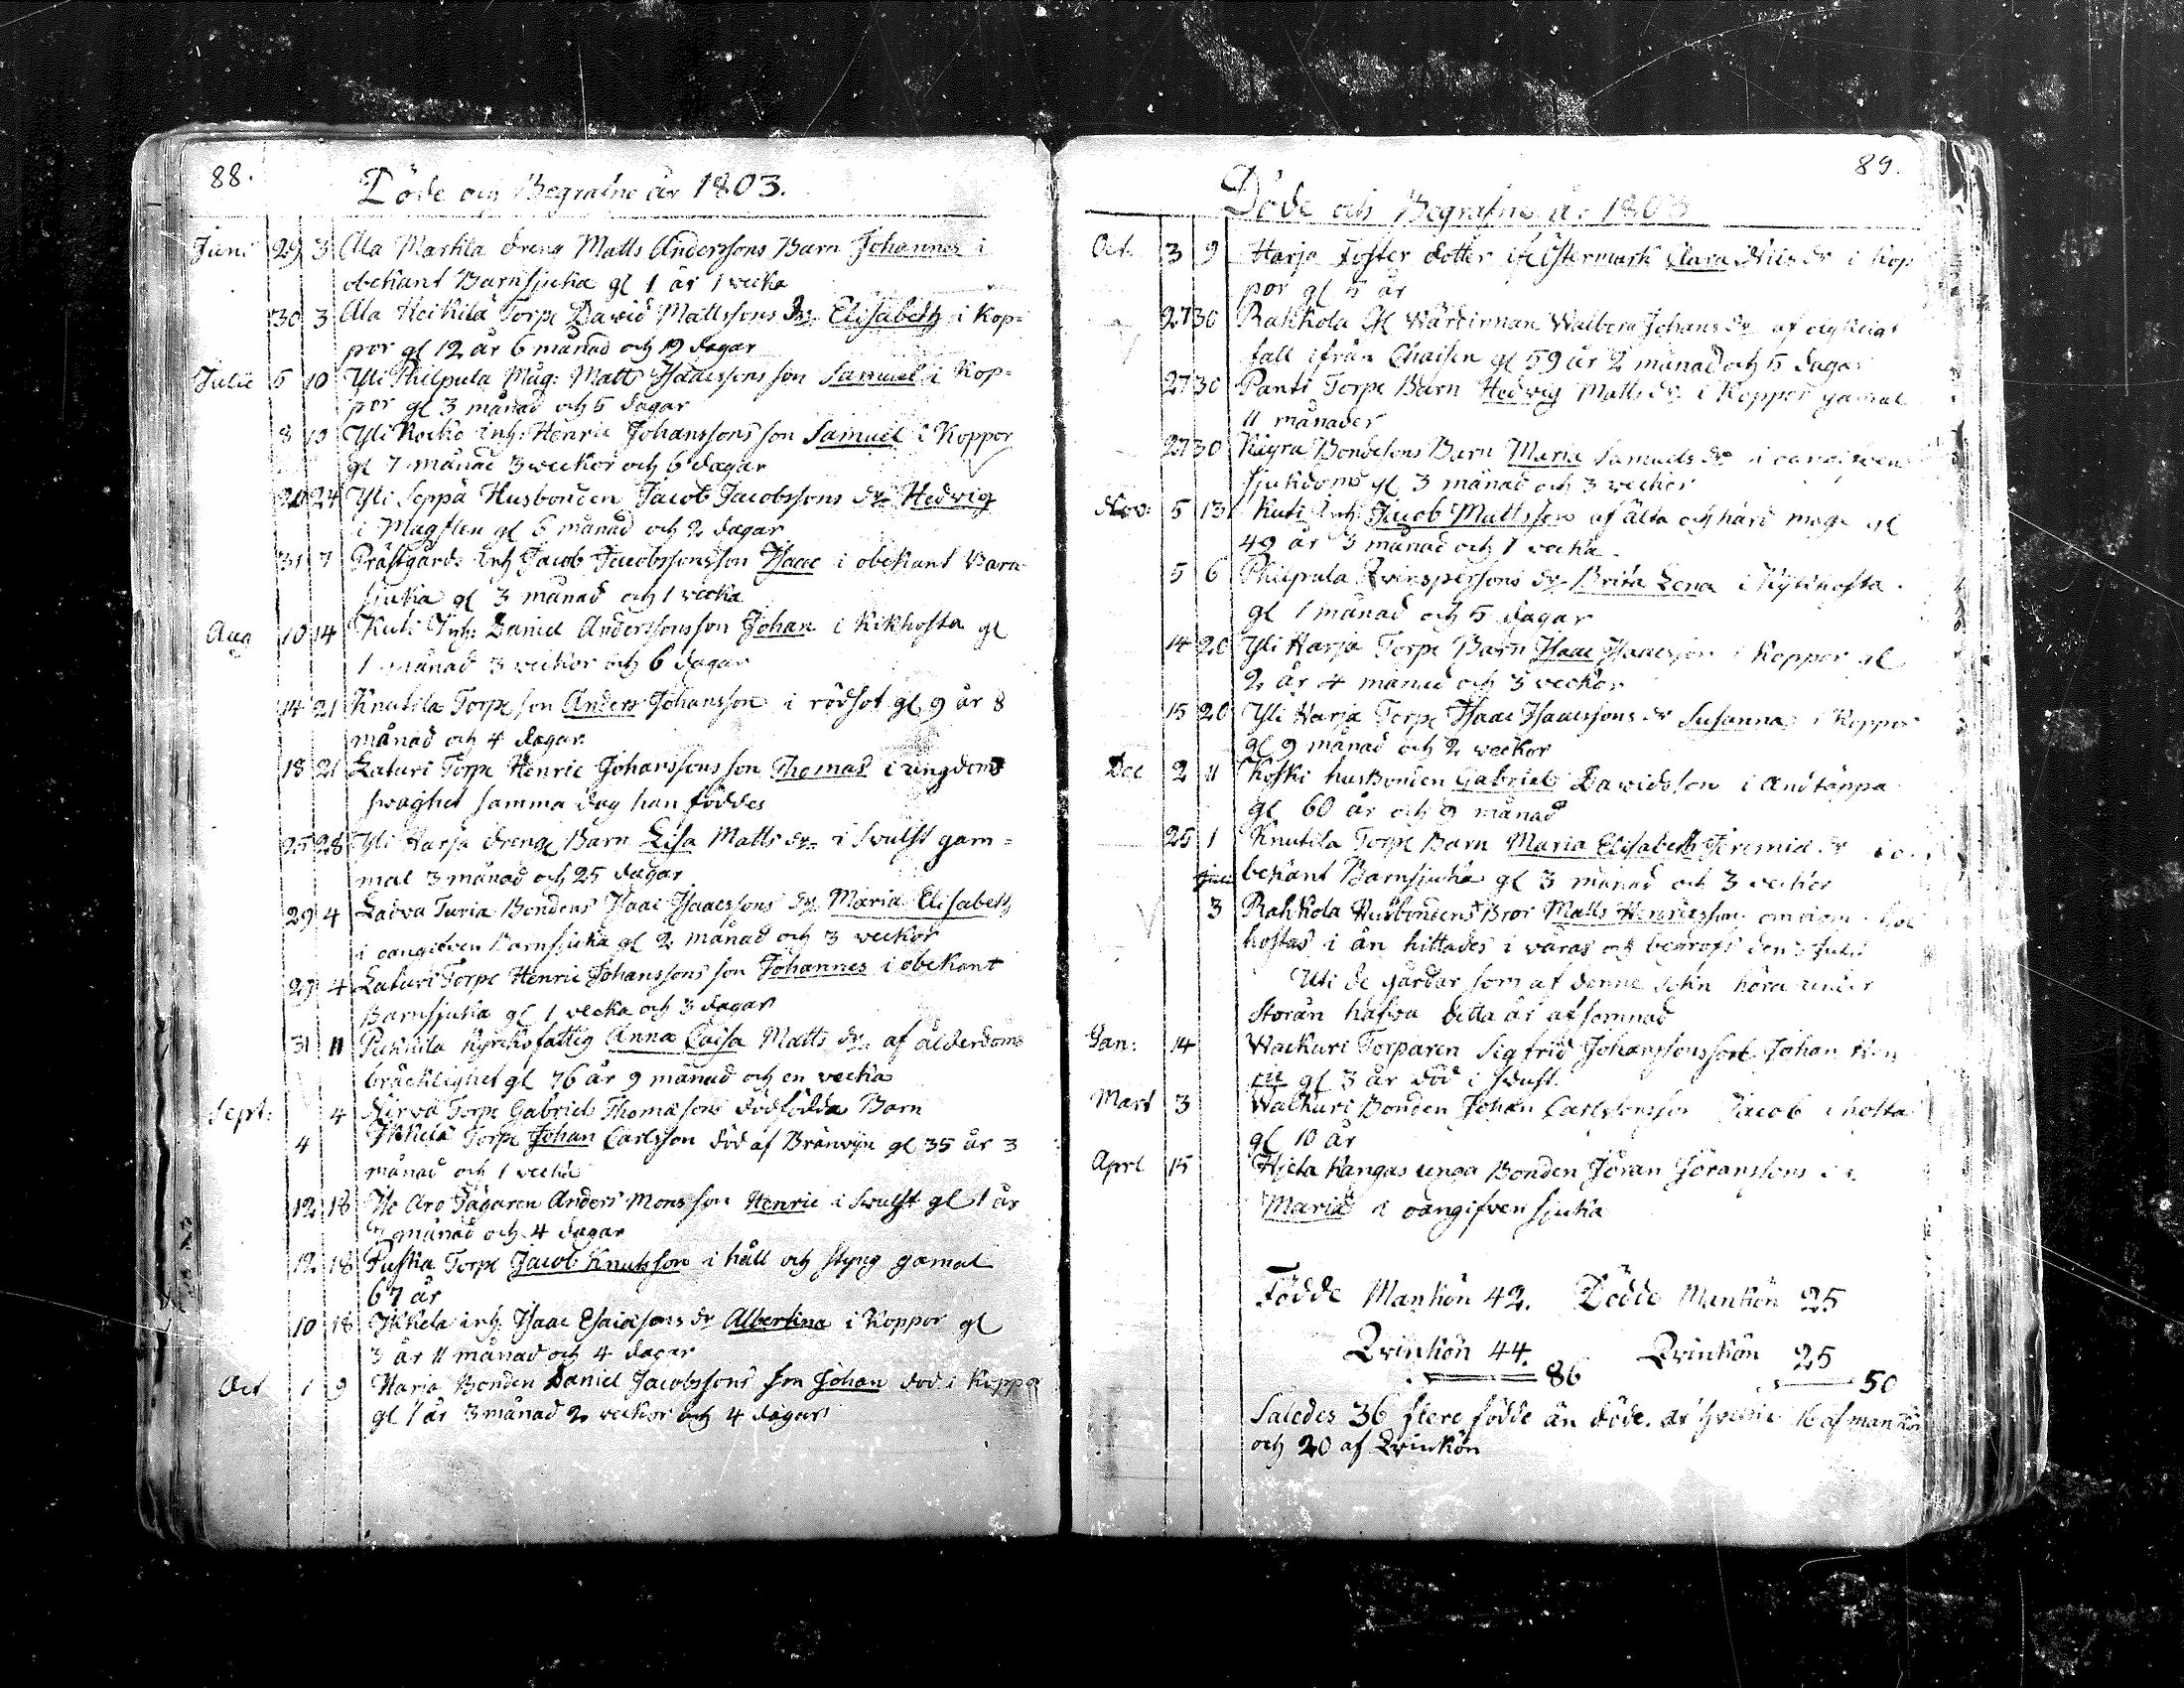 88.
Döde och Begrafne år 1803.
Juni 29 3 Ala Martila dreng Matts Anderssons Barn Johannes i
obekant Barnsjuka gl 1 år 1 vecka
30 3 Ala Heikilä Torp: David Mattssons dr Elisabeth i Kop=
por gl 12 år 6 månad och 19 dagar
Julii 5 10 Yli Philpula Måg: Matts Isaacssons son Samuel i Kop=
por gl 3 månad och 5 dagar
8 10 Yli Rocko inh: Henric Johanssons son Samuel i Koppor
gl 7 månad 3 veckor och 6 dagar
20 24 Yli Seppä Husbonden Jacob Jacobssons dr Hedvig
i Magsten gl 5 månad och 2 dagar
31 7 Prästgårds inh Jacob Jacobssons son Isaac i obekant Barn
sjuka gl 3 månad och 1 vecka
Aug 10 14 Kuti Inh: Daniel Anderssons son Johan i Kikhosta gl
1 månad 3 veckor och 6 dagar
14 21 Knutila Torpe son Anders Johansson i rödsot gl 9 år 8
månad och 4 dagar
18 21 Laturi Torpe Henric Johanssons son Thomas i ungdoms
svaghet samma dag han föddes
25 28 Yli Harja drenge Barn Lisa Matts dr i Svulst gam=
mal 3 månad och 25 dagar
29 4 Ladva Turia Bondens Isaac Isaacssons dr Maria Elisabeth
i oangifven Barnsjuka gl 2 månad och 3 veckor
29 4 Laturi Torpe Henric Johanssons son Johannes i obekant
Barnsjuka gl 1 vecka och 3 dagar
31 11 Pukkila Kyrkofattig Anna Caisa Matts dr af ålderdoms
bräcklighet gl 76 år 9 månad och en vecka
Sept: 4 Nirva Torpe Gabriel Thomasons dödfödda Barn
4 Ikkela Torpe Johan Carlsson död af Bränvijn gl 35 år 3
månad och 1 vecka
12 18 Iso Aro Jägaren Anders Mons son Henric i Svulst gl 1 år
månad och 4 dagar
12 18 Puska Torpe Jacob Knutsson i håll och styng gamal
67 år
10 18 Ikkela inh Isaac Esaiæsons dr Albertina i Koppor gl
3 år 11 månad och 4 dagar
Oct 1 9 Harja Bonden Daniel Jacobssons son Johan död i Koppor
gl 1 år 3 månad 2 veckor och 4 dagar
89.
Döde och Begrafne år 1803
Oct. 3 9 Harja Foster dotter Östermark Clara Nils dr i Kop
por gl 5 år
27 30 Rahkola Gl Wärdinnan Walborg Johans dr af olyckligt
fall ifrån Chaisen gl 59 år 2 månad och 5 dagar
27 30 Panti Torpe Barn Hedvig Matts dr i Koppor gamal
11 månader
27 30 Kåyra Bondesons Barn Maria Samuels dr i oangifven
sjukdoms gl 3 månad och 3 veckor
Nov: 5 13 Kuti inh Jacob Mattsson af älta och hård mage gl
49 år 3 månad och 1 vecka
5 6 Philpula Qvinspersons dr Brita Lena i Kikhosta
gl 1 månad och 5 dagar
14 20 Yli Harja Torpe Barn Isaac Isaacsson i Koppor gl
2 år 4 månad och 3 veckor
15 20 Yli Harja Torpe Isaac Isaacssons dr Susanna i Koppor
gl 9 månad och 2 veckor
Dec 2 11 Koski husbonden Gabriel Davidsson i Andtäppa
gl 60 år och 9 månad
25 1 Knutila Torpe Barn Maria Elisabeth Jeremiæ dr i o
bekant Barnsjuka gl 3 månad och 3 veckor
3 Rahkola Husbondens Bror Matts Henricsson
i ån hittades i våras och begrofs den 3 Julii
Uti de gårdar som af denne Sokn höra under
Storån hafva detta år afsomnad
Jan: 14 Wackuri Torparen Sigfrid Johanssons son Johan Hen
ric gl 3 år död i svulst
Mart 3 Walkuri Bonden Johan Carlssons son Jacob i hosta
gl 10 år
Aprl 15 Hieta Kangas unga Bonden Jöran Jöranssons
Maria i oangifven sjuka
Födde Mankön 42. Dödde Mankön 25
Qvinkön 44. Qvinkön 25
86 50
Således 36 flere födde än döde. af hvilka 16 af mankön
och 20 af Qvinkön